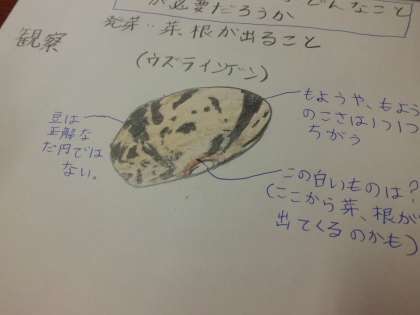 どんなこと
が必要だろうか
発芽‥芽、根が出ること
観察
(ウズラインゲン)
豆は
正解な
だ円では
ない。
もようや、もよう
のこさは1つ1つ
ちがう
この白いものは?
(ここから芽、根が
出てくるのかも)